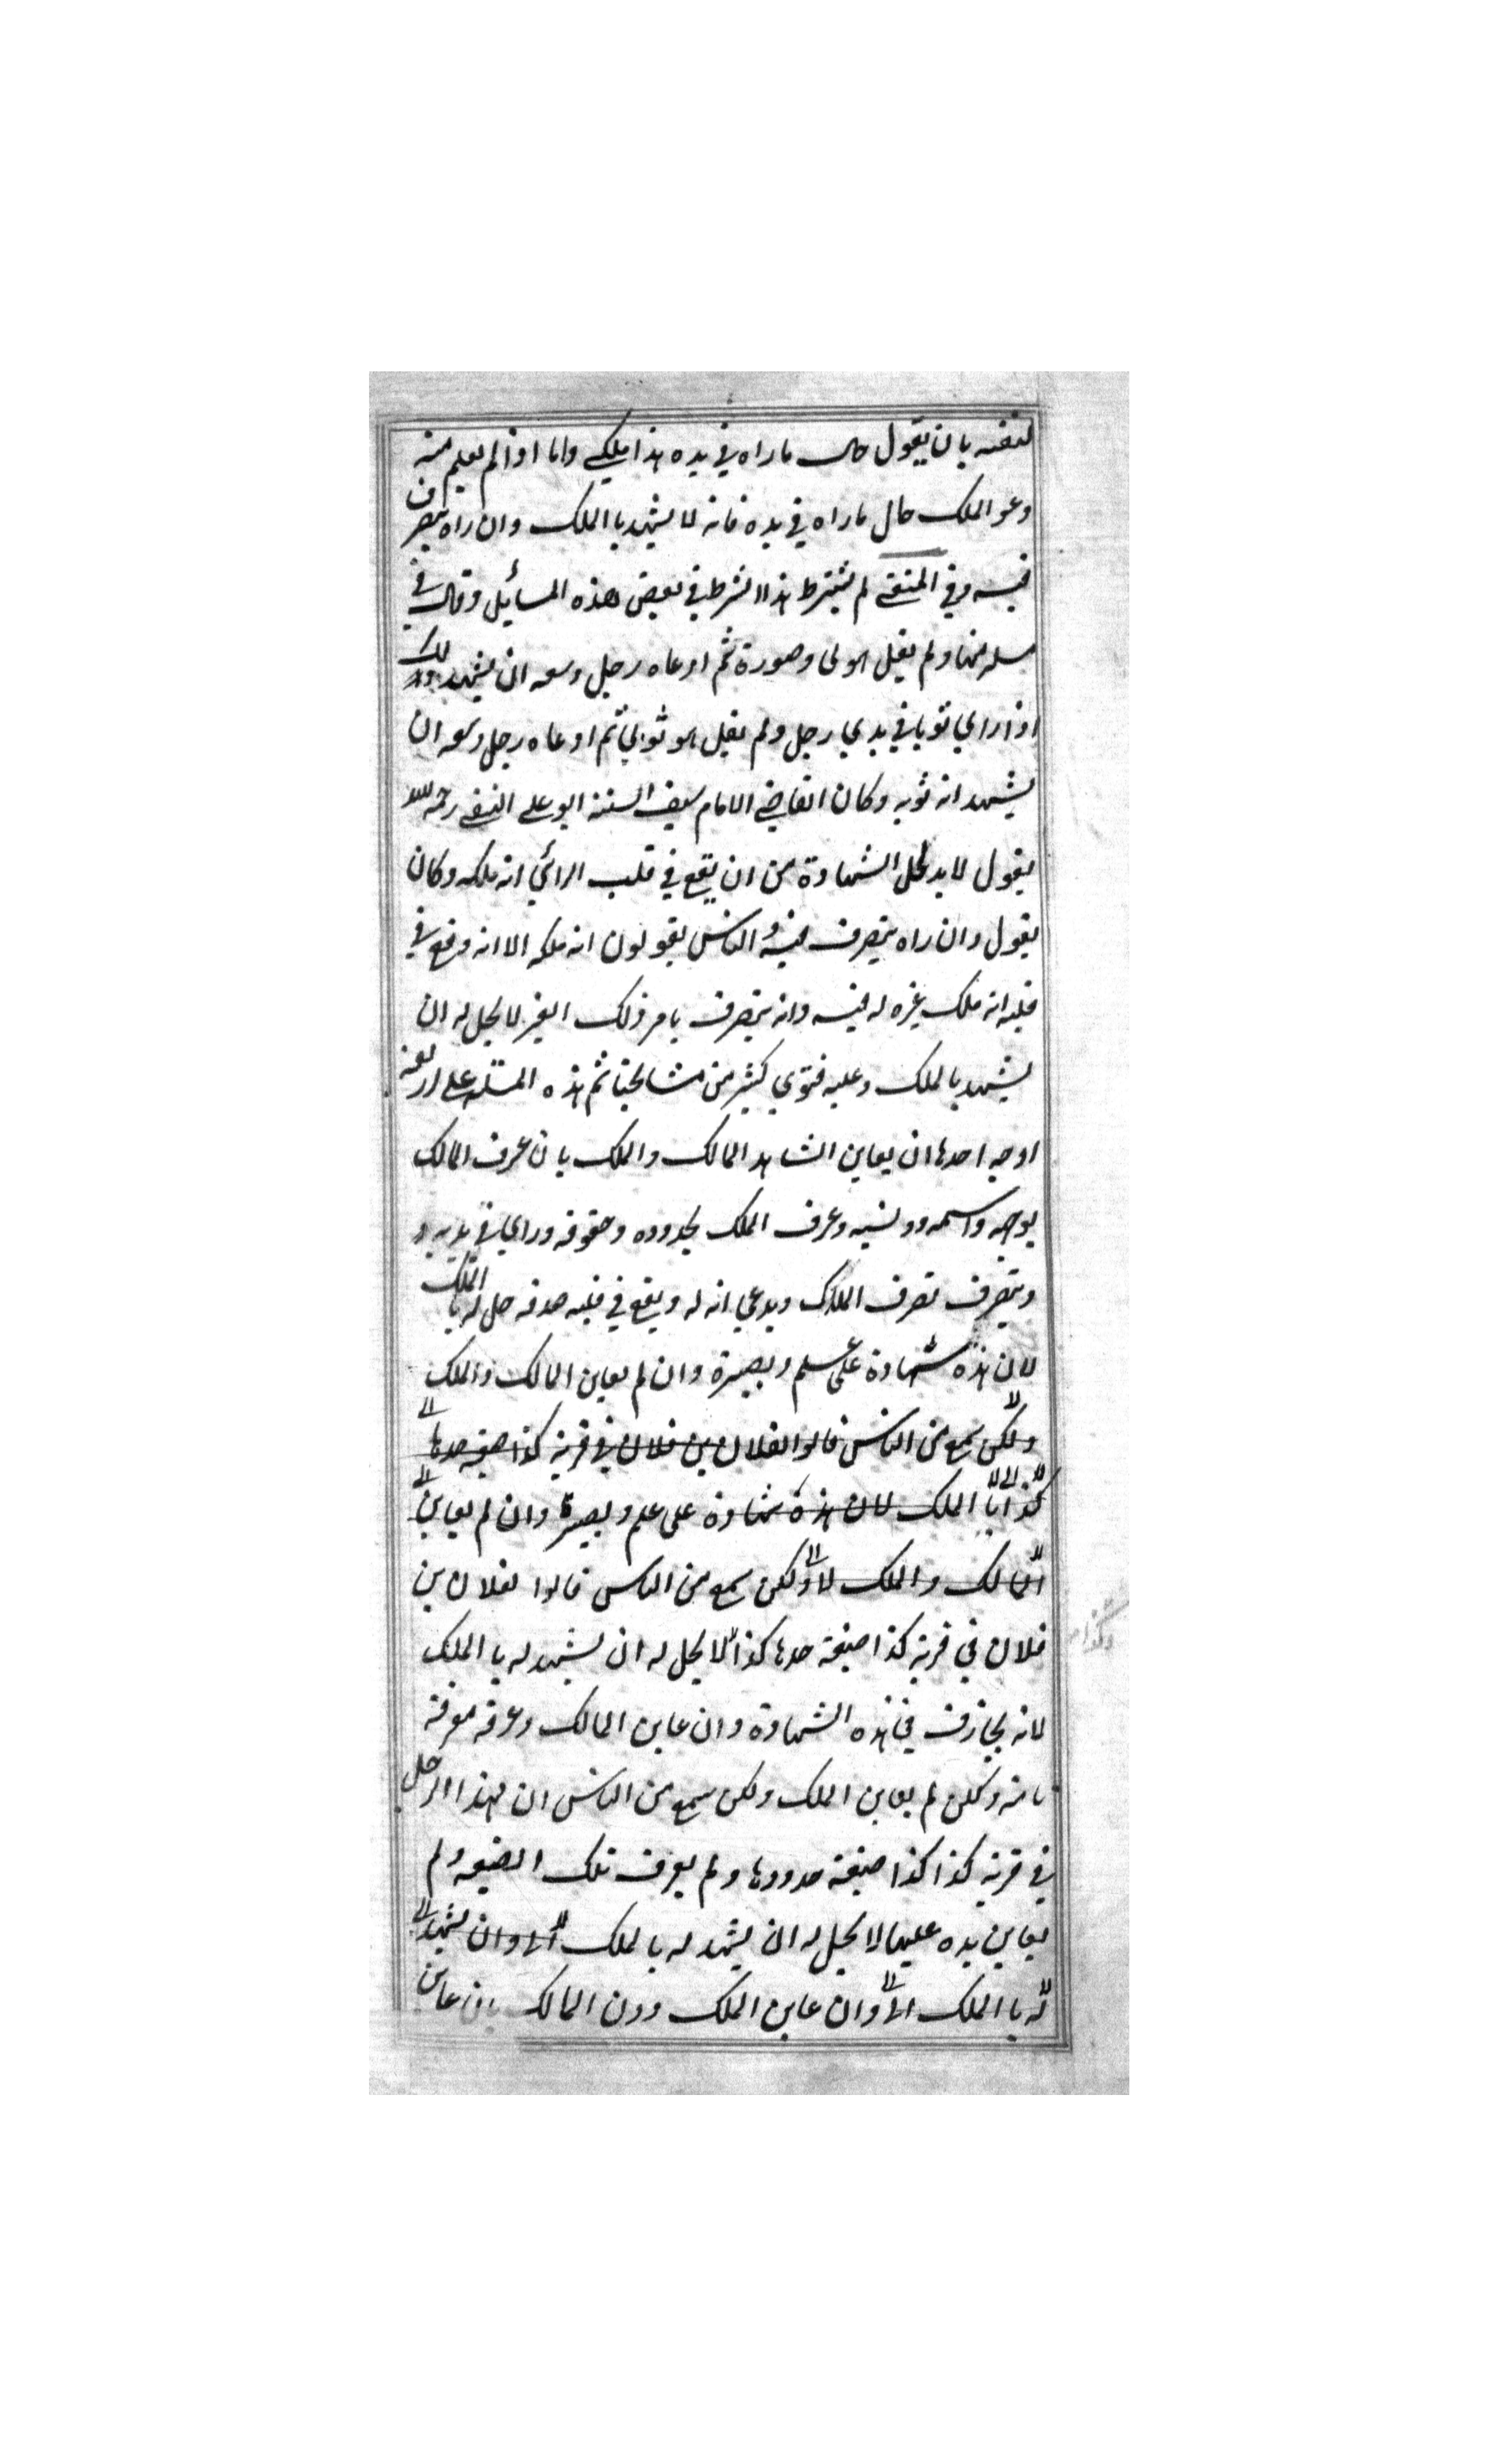 لنفسه بان يقول حال ما راه في يده هذا ملكي واما اذا لم يعلم منه
دعو الملك حال ما راه في يده فانه لا يشهد با الملك وان راه يتصرف
فيه وفي المنتقى لم يشترط هذا الشرط في بعض هذه المسائل وقال في
مسله منها ولم يقل هو لي وصورة ثم ادعاه رجل وسعه ان يشهد بذلك
اذا راي ثوبا في يدي رجل ولم يقل هو ثوبي ثم ادعاه رجل وسعه ان
يشهد انه ثوبه وكان القاضي الامام سيف السنة ابو علي النسفي رحمه الله
يقول لا بد لحل الشهادة من ان يقع في قلب الرائي انه ملكه وكان
يقول وان راه يتصرف فيه والناس يقولون انه ملكه الا انه وقع في
قلبه انه ملك غيره له فيه وانه يتصرف بامر ذلك الغير لا يحل له ان
يشهد بالملك وعليه فتوي كثير من مشايخنا ثم هذه المسئلة على اربعة
اوجه احدها ان يعاين الشاهد المالك والملك بان عرف المالك
بوجهه واسمه ونسبه وعرف الملك بحدوده وحقوقه وراي في يديه و
ويتصرف تصرف الملاك ويدعي انه له ويقع في قلبه صدقه حل له با الملك
لان هذه شهادة على علم وبصيرة وان لم يعاين المالك والملك
ولكن سمع من الناس قالوا لفلان بن فلان في قرية كذا ضيعة حدها
كذا با الملك لان هذه شهادة على علم وبصيرة وان لم يعاين
المالك والملك لا ولكن سمع من الناس قالوا لفلان بن
فلان في قرية كذا ضيعة حدها كذا لا يحل له ان يشهد له با الملك
لانه يجازف في هذه الشهادة وان عاين المالك وعرفه معرفة
تامة ولكن لم يعاين الملك ولكن سمع من الناس ان لهذا الرجل
في قرية كذا كذا ضيعة حدودها ولم يعرف تلك الضيعة ولم
يعاين يده عليها لا يحل له ان يشهد له بالملك الا وان يشهد
له با الملك الا وان عاين الملك دون المالك بان عاين